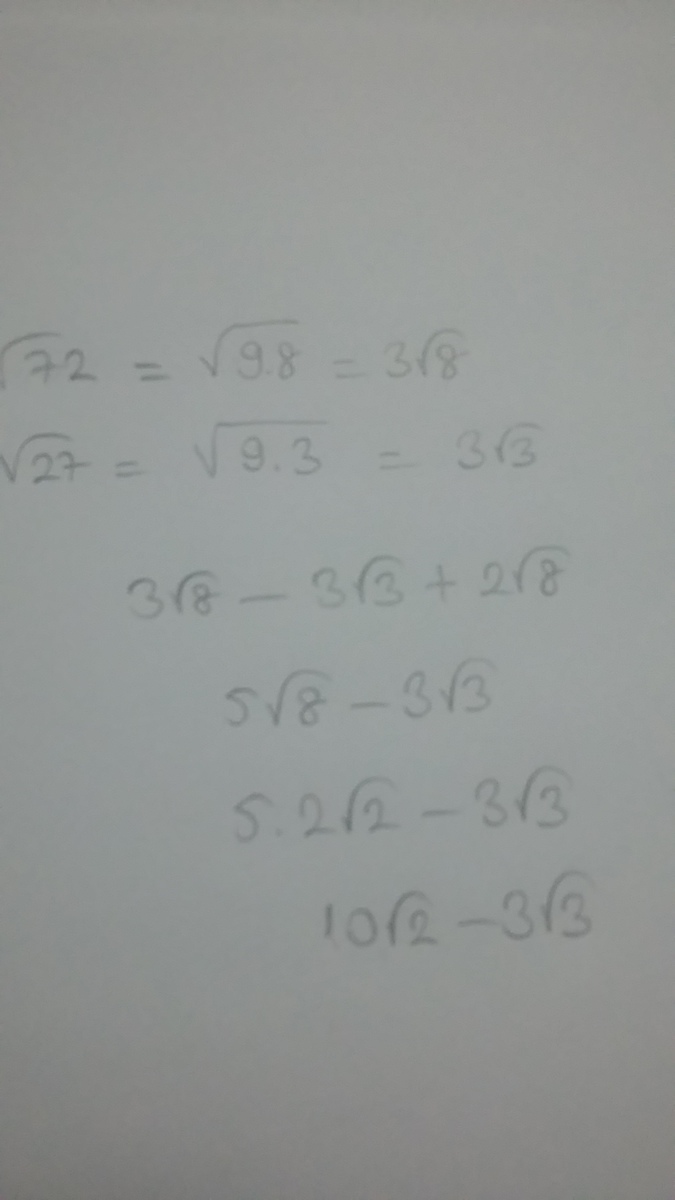 √72 = √9.8 = 3√8
√27 = √9.3 = 3√3
3√8 - 3√3 + 2√8
5√8 - 3√3
5.2√2 - 3√3
10√2 - 3√3